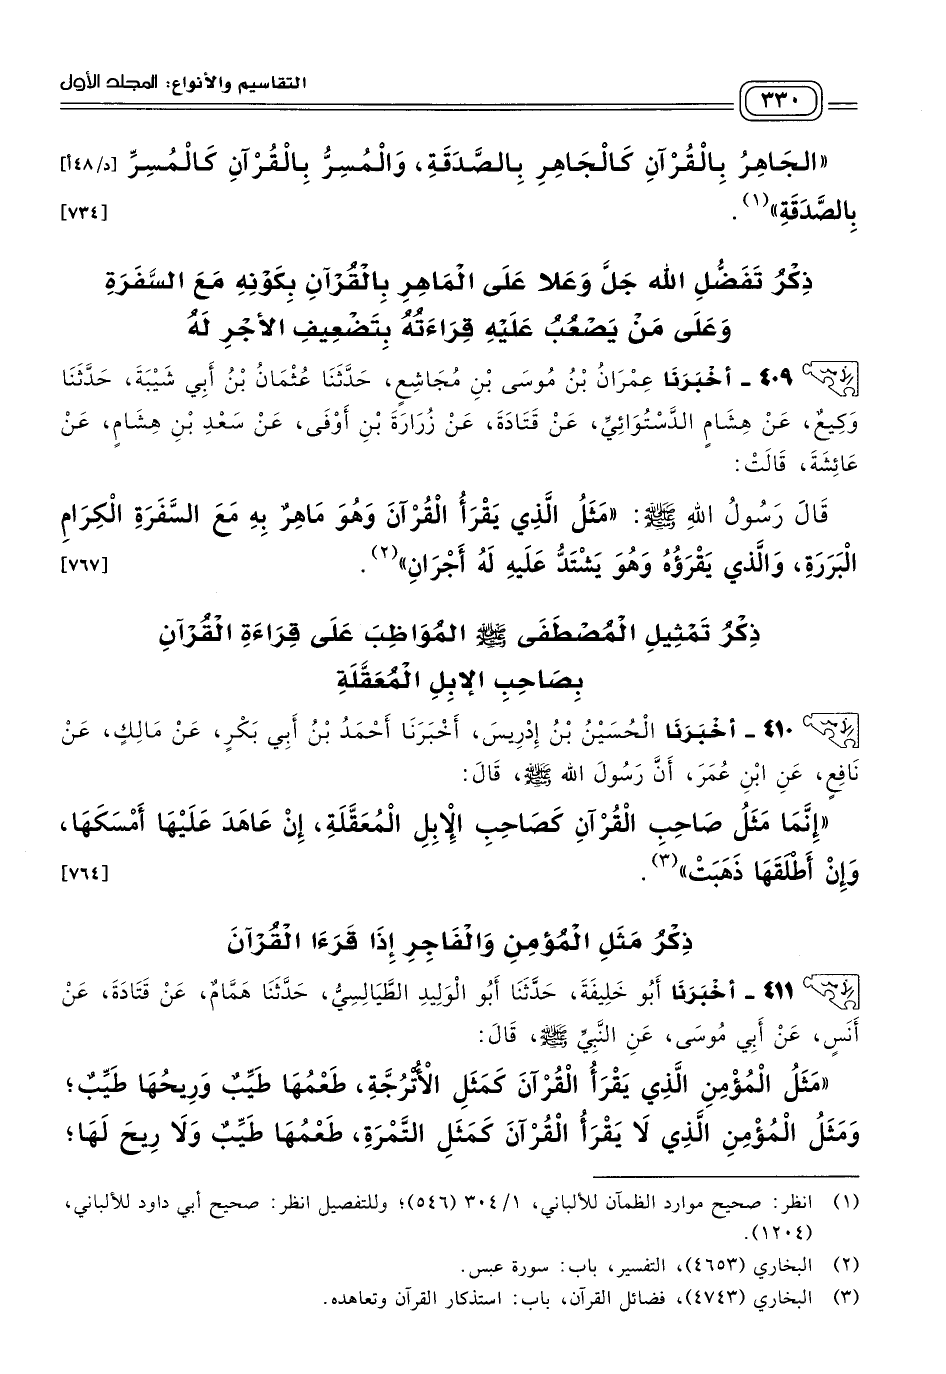 ٣٣٠ التقاسيم والأنواع: المجلد الأول
«الجَاهِرُ بِالْقُرْآنِ كَالْجَاهِرِ بِالصَّدَقَةِ، وَالْمُسِرُّ بِالْقُرْآنِ كَالْمُسِرِّ [د/٤٨أ]
بِالصَّدَقَةِ»(١). [٧٣٤]
ذِكْرُ تَفَضُّلِ الله جَلَّ وَعَلا عَلَى الْمَاهِرِ بِالْقُرْآنِ بِكَوْنِهِ مَعَ السَّفَرَةِ
وَعَلَى مَنْ يَصْعُبُ عَلَيْهِ قِرَاءَتُهُ بِتَضْعِيفِ الأَجْرِ لَهُ
٤٠٩ ـ أَخْبَرَنَا عِمْرَانُ بْنُ مُوسَى بْنِ مُجَاشِعٍ، حَدَّثَنَا عُثْمَانُ بْنُ أَبِي شَيْبَةَ، حَدَّثَنَا
وَكِيعٌ، عَنْ هِشَامٍ الدَّسْتُوَائِيِّ، عَنْ قَتَادَةَ، عَنْ زُرَارَةَ بْنِ أَوْفَى، عَنْ سَعْدِ بْنِ هِشَامٍ، عَنْ
عَائِشَةَ، قَالَتْ:
قَالَ رَسُولُ اللهِ ﷺ: «مَثَلُ الَّذِي يَقْرَأُ الْقُرْآنَ وَهُوَ مَاهِرٌ بِهِ مَعَ السَّفَرَةِ الْكِرَامِ
الْبَرَرَةِ، وَالَّذي يَقْرَؤُهُ وَهُوَ يَشْتَدُّ عَلَيهِ لَهُ أَجْرَانِ»(٢). [٧٦٧]
ذِكْرُ تَمْثِيلِ الْمُصْطَفَى ﷺ المُوَاظِبَ عَلَى قِرَاءَةِ الْقُرْآنِ
بِصَاحِبِ الإبِلِ الْمُعَقَّلَةِ
٤١٠ ـ أَخْبَرَنَا الْحُسَيْنُ بْنُ إِدْرِيسَ، أَخْبَرَنَا أَحْمَدُ بْنُ أَبِي بَكْرٍ، عَنْ مَالِكٍ، عَنْ
نَافِعٍ، عَنِ ابْنِ عُمَرَ، أَنَّ رَسُولَ الله ﷺ، قَالَ:
«إِنَّمَا مَثَلُ صَاحِبِ الْقُرْآنِ كَصَاحِبِ الْإِبِلِ الْمُعَقَّلَةِ، إِنْ عَاهَدَ عَلَيْهَا أَمْسَكَهَا،
وَإِنْ أَطْلَقَهَا ذَهَبَتْ»(٣). [٧٦٤]
ذِكْرُ مَثَلِ الْمُؤْمِنِ وَالْفَاجِرِ إِذَا قَرَءَا الْقُرْآنَ
٤١١ ـ أَخْبَرَنَا أَبُو خَلِيفَةَ، حَدَّثَنَا أَبُو الْوَلِيدِ الطَّيَالِسِيُّ، حَدَّثَنَا هَمَّامٌ، عَنْ قَتَادَةَ، عَنْ
أَنَسٍ، عَنْ أَبِي مُوسَى، عَنِ النَّبِيِّ ﷺ، قَالَ:
«مَثَلُ الْمُؤْمِنِ الَّذِي يَقْرَأُ الْقُرْآنَ كَمَثَلِ الْأُتْرُجَّةِ، طَعْمُهَا طَيِّبٌ وَرِيحُهَا طَيِّبٌ؛
وَمَثَلُ الْمُؤْمِنِ الَّذِي لَا يَقْرَأُ الْقُرْآنَ كَمَثَلِ التَّمْرَةِ، طَعْمُهَا طَيِّبٌ وَلَا رِيحَ لَهَا؛
(١) انظر: صحيح موارد الظمآن للألباني، ٣٠٤/١ (٥٤٦)؛ وللتفصيل انظر: صحيح أبي داود للألباني،
(١٢٠٤).
(٢) البخاري (٤٦٥٣)، التفسير، باب: سورة عبس.
(٣) البخاري (٤٧٤٣)، فضائل القرآن، باب: استذكار القرآن وتعاهده.